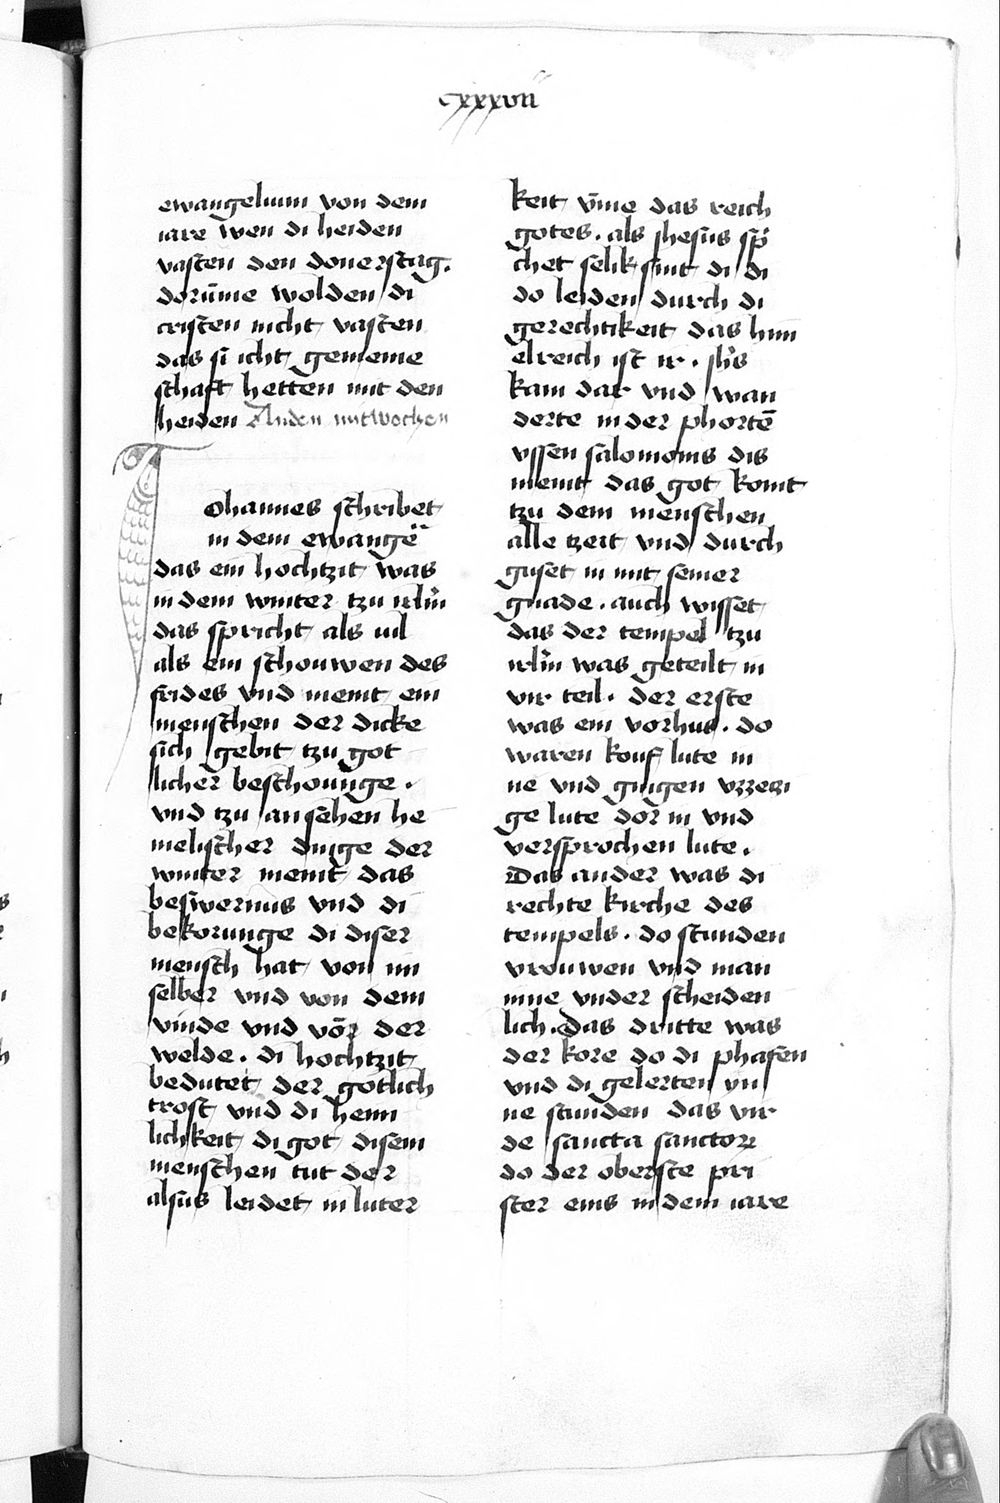 cxxxvii
ewangelium von dem
iare wen di heiden
vasten den donerstag.
dorūme wolden di
cristen nicht vasten
das si icht gemeine
schaft hetten mit den
heiden An den mitwochen
Johannes schribet
in dem ewange
das ein hochtzit was
in dem winter tzu irlm̄
das spricht als vil
als ein schouwen des
frides vnd meint ein
menschen der dicke
sich gebit tzu got
licher beschouunge.
vnd tzu an sehen he
melischer dinge der
winter meint das
beswernus vnd di
bekorunge di diser
mensch hat von im
selber vnd von dem
vinde vnd vōr der
welde. di hochtzit
bedutet der gotlich
trost vnd di heim
lichkeit di got disem
menschen tut der
alsus leidet in luter
keit vm̄e das reich
gotes. als Jhesus sp̄
chet selik sint di di
do leiden durch di
gerechtikeit das him
elreich ist ir. Jhs
kam dar vnd wan
derte in der phortē
vssen salomonis dis
meint das got komt
tzu dem menschen
alle tzeit vnd durch
guset in mit seiner
gnade. auch wisset
das der tempel tzu
irlm̄ was geteilt in
vir teil. der erste
was ein vorhus. do
waren kouf lute in
ne vnd gingen vzzewi
ge lute dor in vnd
versprochen lute.
Das ander was di
rechte kirche des
tempels. do stunden
vrouwen vnd man
inne vnder scheiden
lich. das dritte was
der kore do di phafen
vnd di gelerten yn
ne stunden das vir
de sancta sanctorꝝ
do der oberste pri
ster eins in dem iare